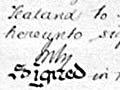 Zealand to
hereunto si
only
Signed in